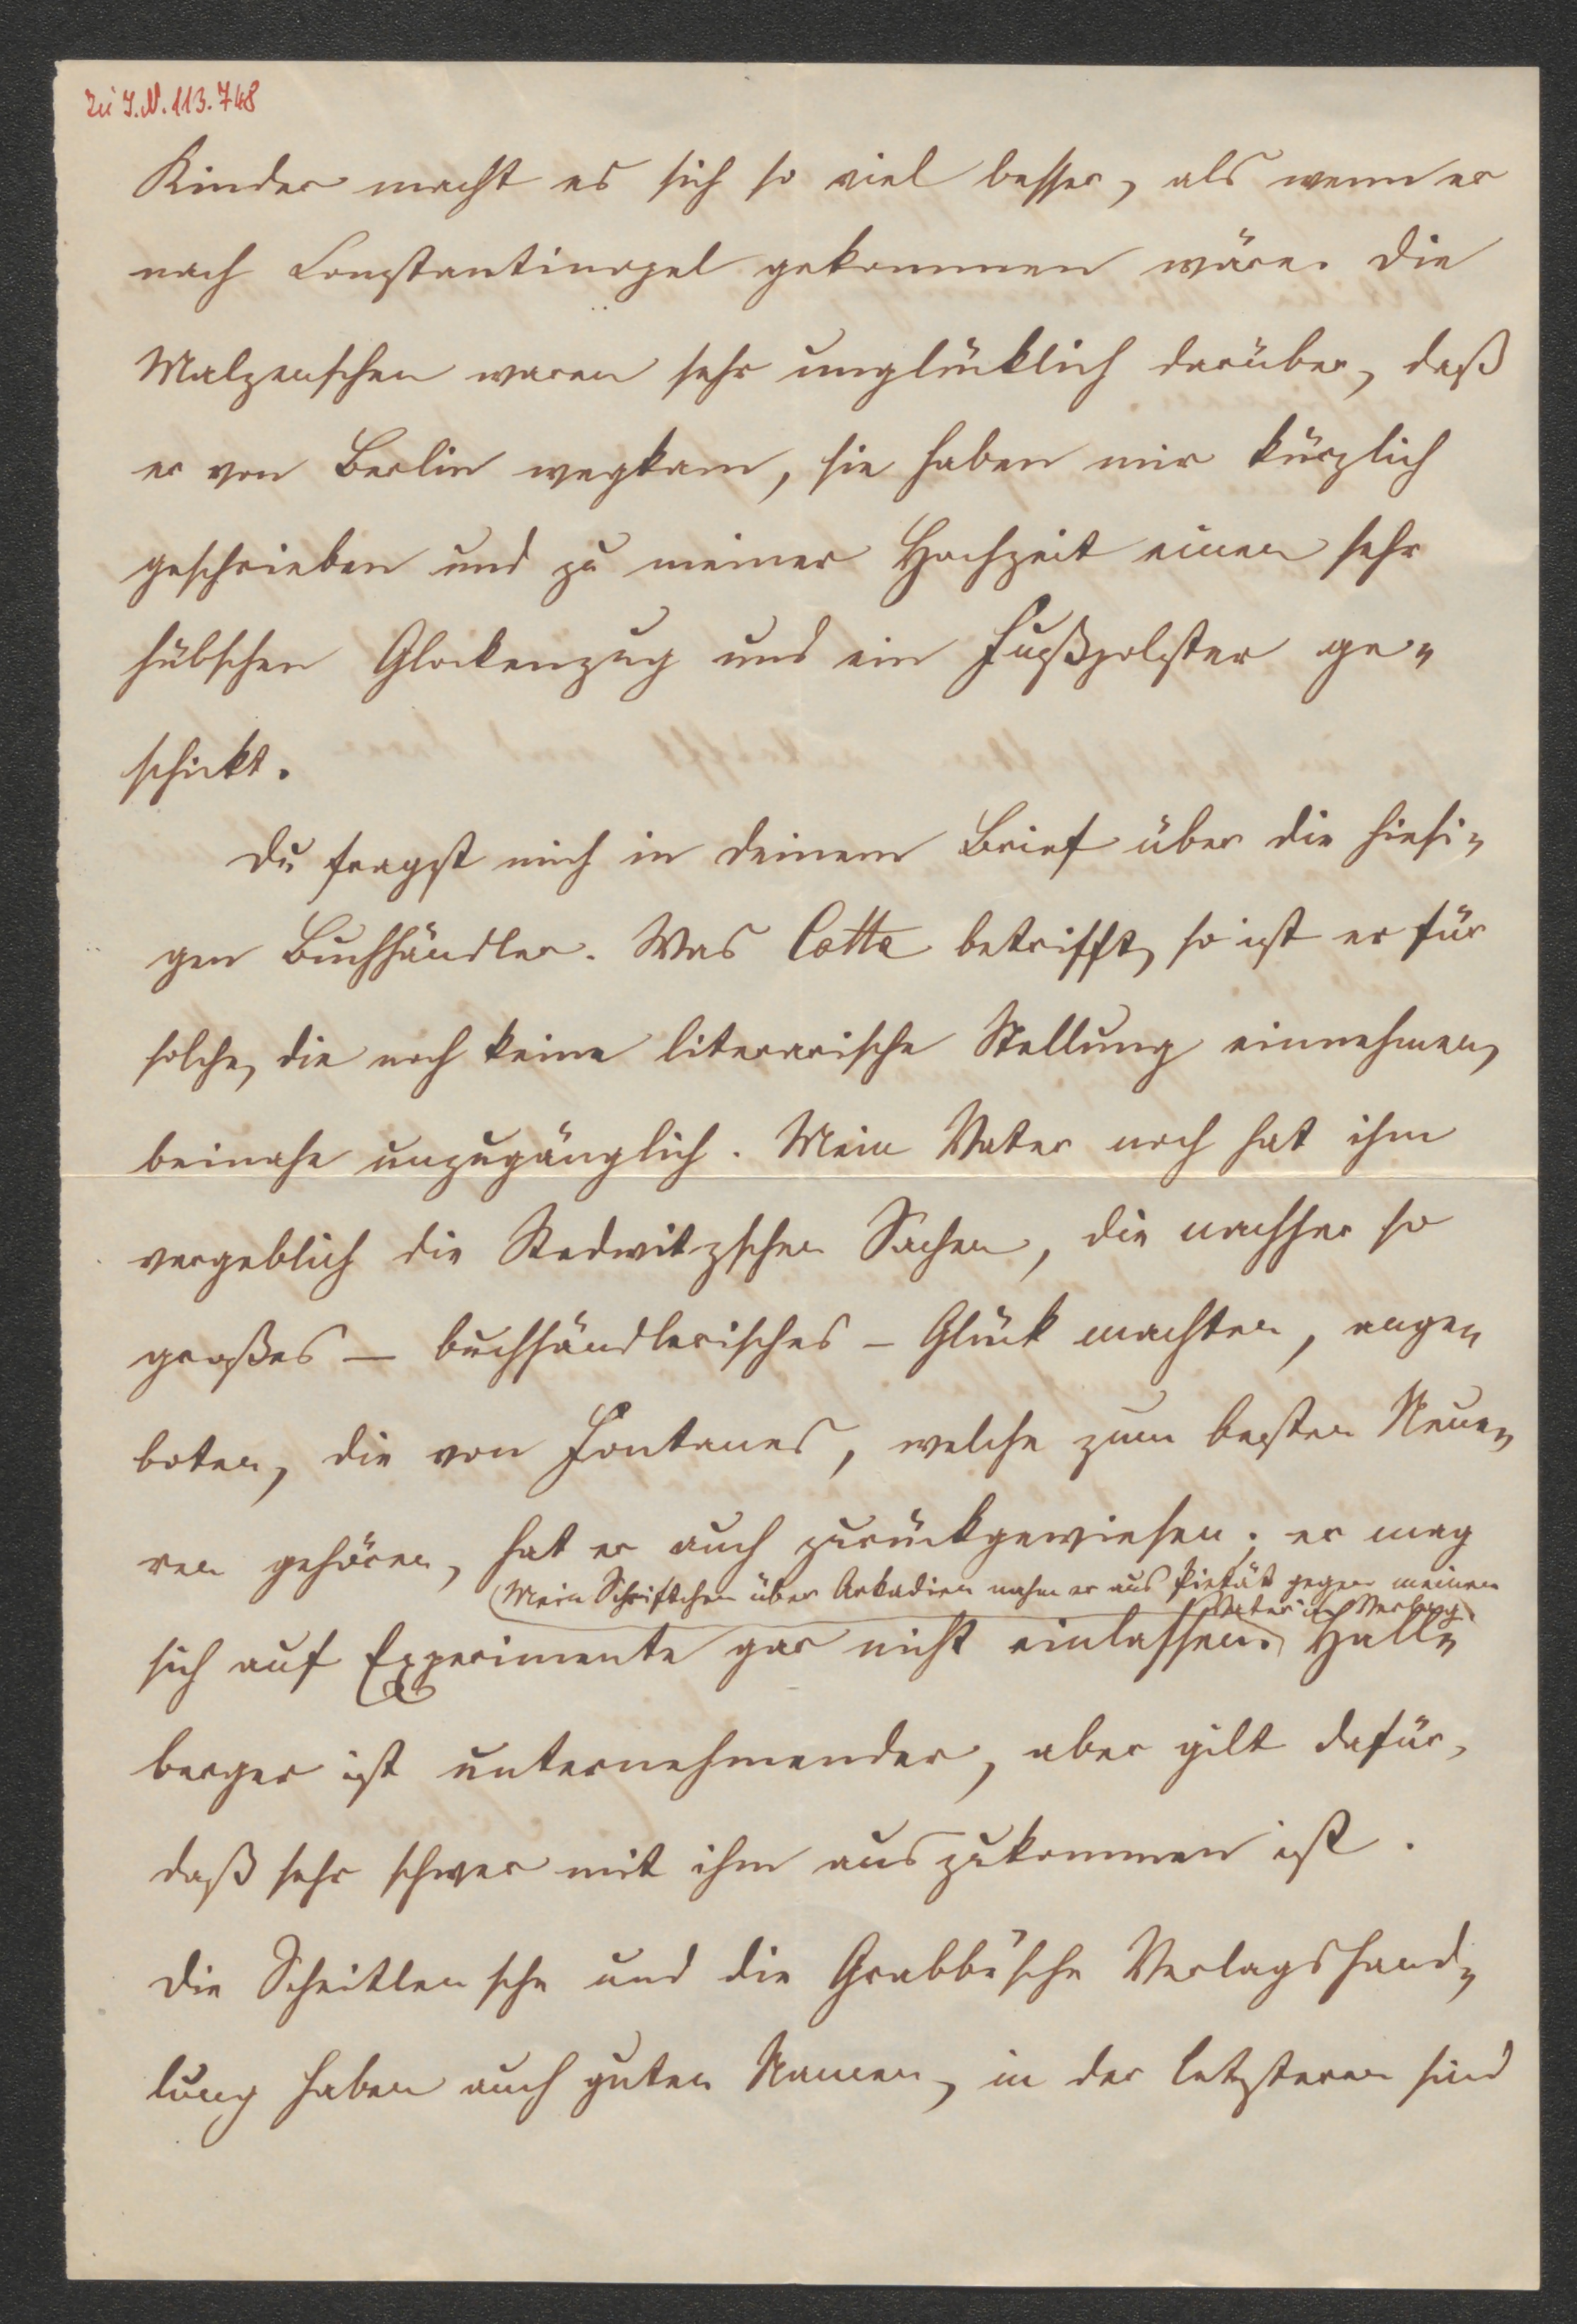 Zu I.N. 113.748
Kinder macht es sich so viel besser, als wenn er
nach Constantinopel gekommen wäre. Die
Malzenschen waren sehr unglücklich darüber, daß
er von Berlin wegkam, sie haben mir kürzlich
geschrieben und zu meiner Hochzeit einen sehr
hübschen Glockenzug und ein Fußpolster ge-
schickt.
Du fragst mich in deinem Brief über die hiesi-
gen Buchhändler. Was Cotta betrifft, so ist er für
solche, die noch keine literarische Stellung einnehmen,
beinahe unzugänglich. Mein Vater noch hat ihm
vergeblich die Redwitzschen Sachen, die nachher so
großes – buchhändlerisches – Glück machten, ange-
boten, die von Fontanes, welche zum besten Neue-
ren gehören, hat er auch zurückgewiesen; er mag
(Mein Schriftchen über Arkadien nahm er aus Pietät gegen meinen
Vater in Verlag.)
sich auf Experimente gar nicht einlassen. Hall-
berger ist unternehmender, aber gilt dafür,
daß sehr schwer mit ihm auszukommen ist.
Die Scheitlensche und die Grabbé'sche Verlagshand-
lung haben auch guten Namen, in der letzteren sind